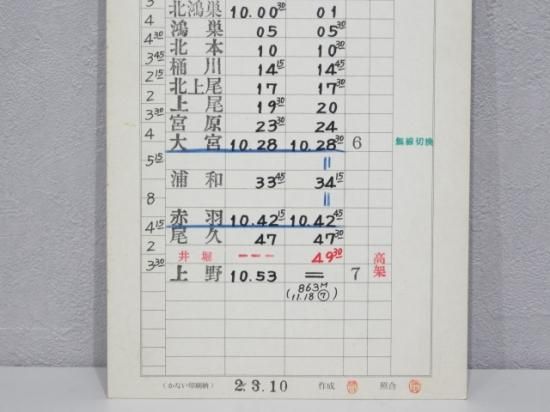 3 北鴻巣 10.00 30 01
4 鴻巣 05 05 30
4 30 北本 10 10 30
3 45 桶川 14 15 14 45
2 15 北上尾 17 17 30
2 上尾 19 30 20
3 30 宮原 23 30 24
4 大宮 10.28 10.28 30 6 無線切換
5 15 〃
浦和 33 45 34 15
8 〃
赤羽 10.42 15 10.42 45
4 15 尾久 47 47 30
2 井堀 --- 49 30 高架
3 30 上野 10.53 = 7
863M
(11.18⑦)
(かない印刷納) 2.3.10 作成 照合